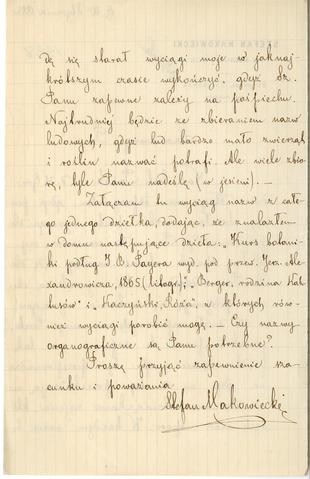 dę się starał wyciągi moje w jaknaj-
krótszym czasie wykończyć, gdyż Sz.
Panu zapewne zależy na pośpiechu.
Najtrudniej będzie ze zbieraniem nazw
ludowych, gdyż lud bardzo mało zwierząt
i roślin nazwać potrafi. Ale wiele zbio-
rę, tyle Panu nadeślę (w jesieni). —
Załączam tu wyciąg nazw z całe-
go jednego dziełka, dodając, że znalazłem
w domu następujące dzieła: "Kurs botani-
ki podług J. B. Payera wyd. pod przew. Jerz. Ale-
xandrowicza, 1865 (litogr.); "Berger, rodzina Kak-
tusów" i "Kaczyński, Róża", z których rów-
nież wyciągi porobić mogę. — Czy nazwy
organograficzne są Panu potrzebne?
Proszę przyjąć zapewnienie sza-
cunku i poważania
Stefan Makowiecki